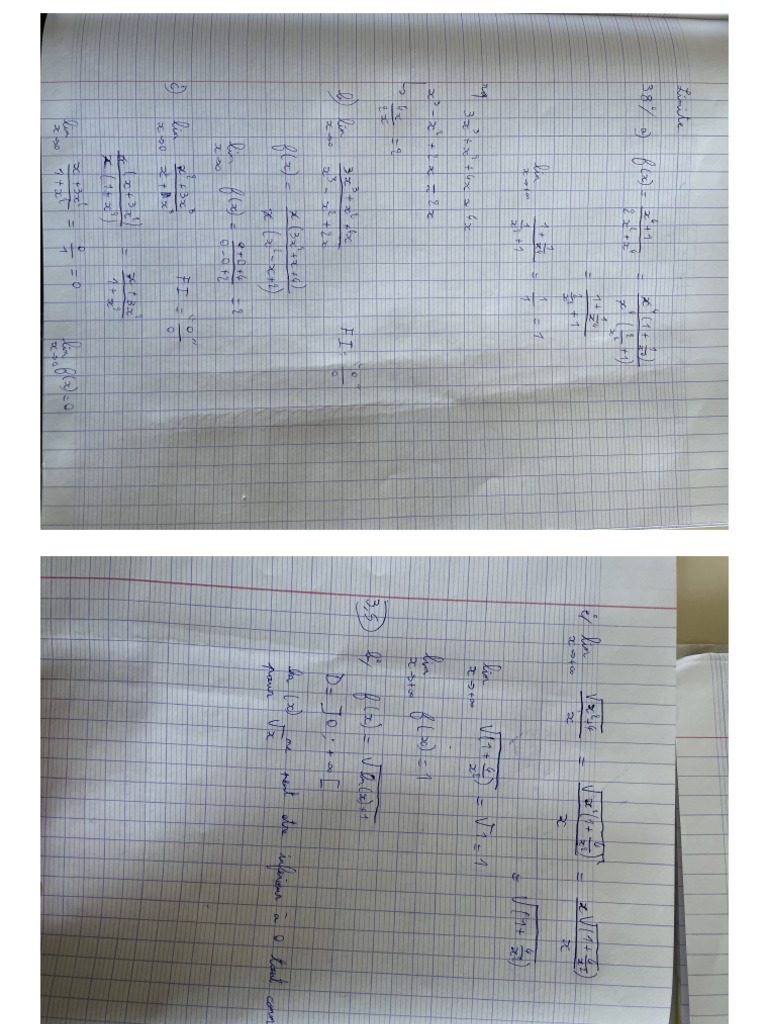 Limite
38°/ a) f(x) = (x⁴+1)/(2x²+x⁴) = x⁴(1+1/x⁴)/x⁴(2/x²+1)
= (1+1/x⁴)/(2/x²+1)
lim x→+∞ (1+1/x⁴)/(2/x²+1) = 1/1 = 1
3x³+x²+4x ≈ 4x
x³-x²+2x ≈ 2x
→ 4x/2x = 2
b) lim x→0 (3x³+x²+4x)/(x³-x²+2x) FI = "0/0"
f(x) = x(3x²+x+4)/x(x²-x+2)
lim x→0 f(x) = (0+0+4)/(0-0+2) = 2
c) lim x→0 (x²+3x³)/(x+x³) FI = "0/0"
x(x+3x²)/x(1+x²) = (x+3x²)/(1+x²)
lim x→0 (x+3x²)/(1+x²) = 0/1 = 0 lim x→0 f(x) = 0
lim x→+∞ √(x²+4)/x = √(x²(1+4/x²))/x = x√(1+4/x²)/x
= √(1+4/x²)
lim x→+∞ √(1+4/x²) = √1 = 1
lim x→+∞ f(x) = 1
3,5
b) f(x) = √(ln(x)+1)
D = ]0;+∞[
ln(x) ne peut être inférieur à 0 tout comm
pour √x